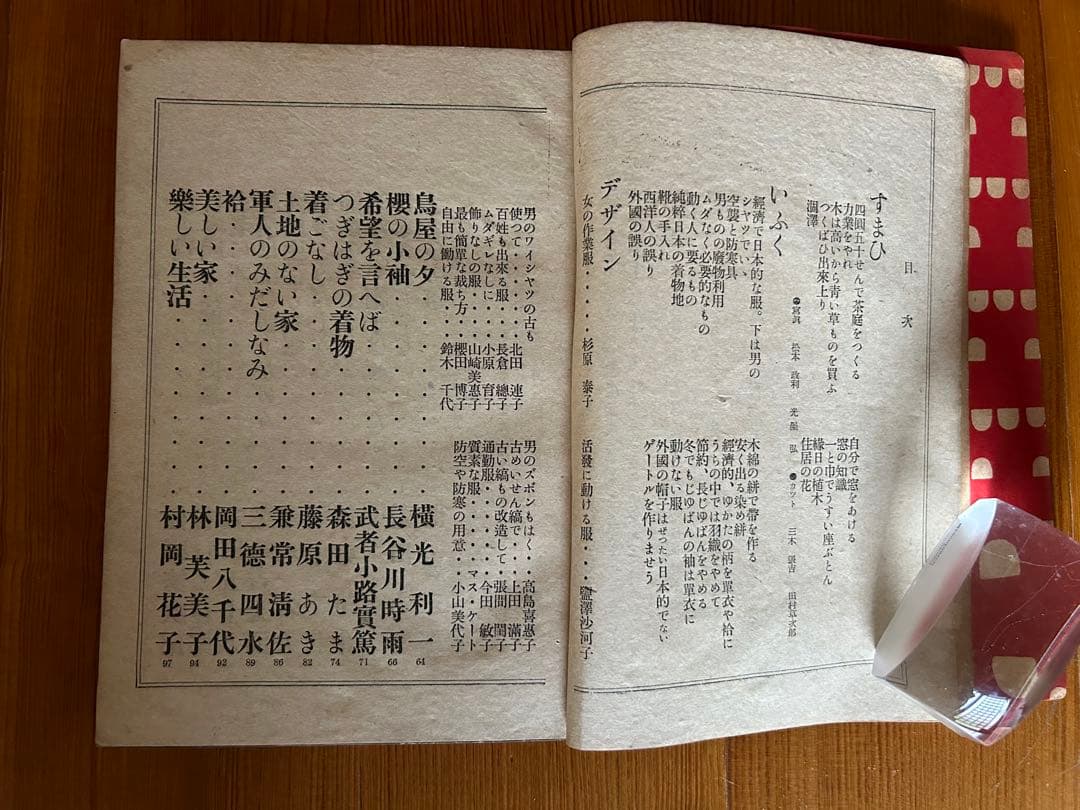 目次
すまひ
四圓五十せんで茶庭をつくる
力業をやれ
木は高いから青い草ものを買ふ
つくばひ出來上り
潤澤
自分で窓をあける
窓の知識
一と巾でうすい座ぶとん
緣日の植木
住居の花
寫眞 松本政利 光墨弘 カット 三木 田村
いふく
經濟で日本的な服。下は男の
シャツでいゝ
空襲と防寒具
男ものの廢物利用
ムダなく必要的なもの
動く人に要るもの
純粹日本の着物地
靴の手入れ
西洋人の誤り
外國の誤り
木綿の絣で帶を作る
安く出る染め絣
經濟的、ゆかたの柄を單衣や袷に
うちの中では羽織をやめて
節約、長じゆばんをやめる
冬でもじゆばんの袖は單衣に
動けない服
外國の帽子はぜつたい日本的でない
ゲートルを作りませう
デザイン
女の作業服・・・・杉原 泰子
活發に動ける服・・・鹽澤沙河子
男のワイシャツの古も
使つて・・・・北田 連子
百姓も出來る服・・・長倉 總子
ムダギレなしに・・・小原 育子
飾りなしの服・・・山崎美惠子
最も簡單な裁ち方・・櫻田 博子
自由に働ける服・・・鈴木 千代
男のズボンもはく・・高島喜惠子
古めいせん縞で・・・上田 滿子
古い縞もの改造して・張間 閏子
通勤服・・・・・今田 敏子
質素な服・・・・マス・ケート
防空や防寒の用意・・小山美代子
鳥屋の夕・・・・・橫光利一 64
櫻の小袖・・・・・長谷川時雨 66
希望を言へば・・・・武者小路實篤 71
つぎはぎの着物・・・森田たま 74
着ごなし・・・・・藤原あき 82
土地のない家・・・・兼常淸佐 86
軍人のみだしなみ・・・三德四水 89
袷・・・・・・岡田八千代 92
美しい家・・・・・林芙美子 94
樂しい生活・・・・・村岡花子 97